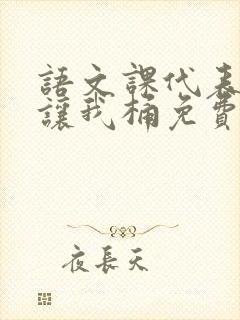 語文課代表
讓我桶免費
夜長天